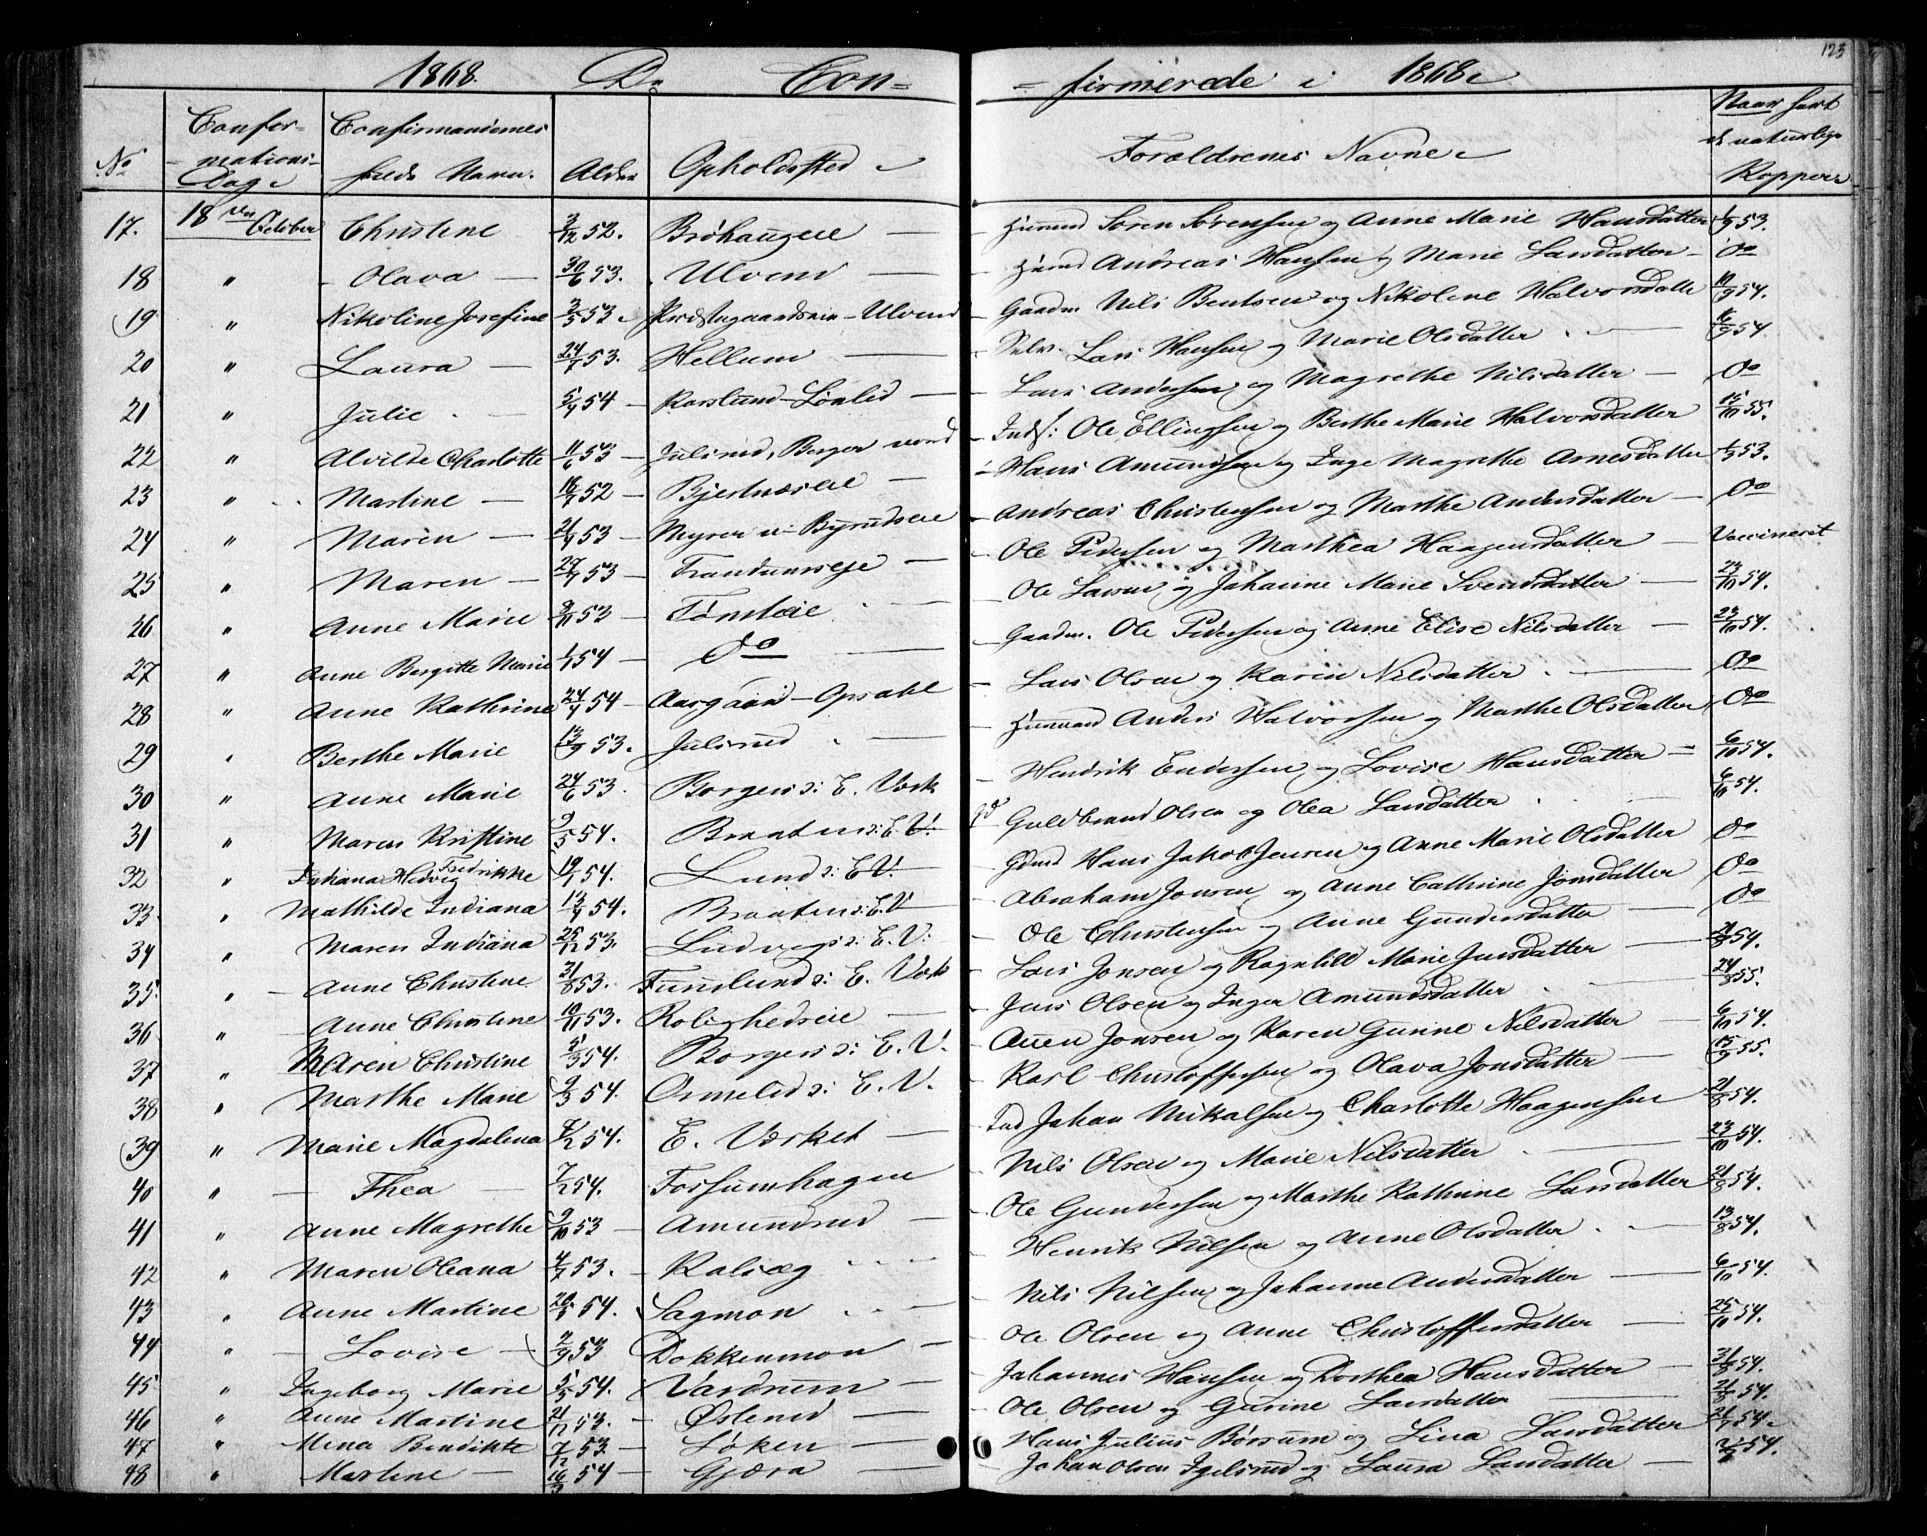 123
1868. De Con- firmerede i 1868
No Confirmations Dag Confirmandernes fulde Navn. Alder Opholdssted Forældrenes Navne Naar havt de naturlige Kopper
17. 18 den October Christine 2/12 52. Brøhaugeie Huusmd Søren Sørensen og Anne Marie Hansdatter 1/9 53.
18 " Olava 30/6 53. Ulvend Huusmd Andreas Hansen og Marie Larsdatter Do
19 " Nikoline Josefine 3/5 53 Præstegaardseie-Ulvend Gaardm Nils Bentsen og Nikoline Halvorsdatter 11/9 54.
20 " Laura 24/7 53. Hellum Selv. Lars Hansen og Marie Olsdatter 11/9 54
21 " Julie 5/4 54 Korslund-Lønlid Lars Andersen og Magrethe Nilsdatter Do
22 " Alvilde Charlotte 11/6 53 Julsrud, Berger nord Inds: Ole Ellingsen og Berthe Marie Halvorsdatter 15/10 55.
23 " Martine 18/7 52 Bjertnæseie Hans Amundsen og Inge Magrethe Arnesdatter 1/9 53.
24 " Maren 21/9 53 Myrer u. Byrudseie Andreas Christensen og Marthe Andersdatter Do
25 " Maren 27/7 53 Trandumseje Ole Pedersen og Marthea Haagensdatter Vaccineret
26 " Anne Marie 9/11 53 Tømteeie Ole Larsen og Johanne Marie Svendsdatter 23/10 54.
27 " Anne Bergitte Marie 1/7 54 Do Gaardm. Ole Pedersen og Anne Elise Nilsdatter 23/10 54.
28 " Anne Kathrine 24/4 54 Aargaan-Opsahl Lars Olsen og Karen Nilsdatter Do
29 " Berthe Marie 13/9 53. Julsrud Huusmand Anders Halvorsen og Marthe Olsdatter Do
30 " Anne Marie 24/6 53. Borgen s: E. Værk Hendrik Endersen og Lovise Hansdatter 6/10 54.
31 " Maren Kristine 9/5 54. Braaten s: E. V. Guldbrand Olsen og Olea Larsdatter 6/10 54.
32 " Indiana Hedvig Fredrikke 19/7 54. Lund s: E V. Gdmd Hans Jakob Jensen og Anne Marie Olsdatter Do
33 " Mathilde Indiana 13/4 54. Braaten s: E. V Abraham Jonsen og Anne Cathrine Jonsdatter Do
34 " Maren Indiana 25/12 53. Ludvigs s: E. V. Ole Christensen og Anne Gundersdatter Do
35. " Anne Christine 31/8 53. Funnlund s: E. Værk Lars Jonsen og Ragnhild Marie Jensdatter 21/8 54.
36 " Anne Christine 10/11 53. Rolighedseie Jens Olsen og Inger Amundsdatter 24/8 55.
37 " Maren Christine 5/3 54. Borgen s: E. V. Auen Jonsen og Karen Gunne Nilsdatter 6/10 54.
38 " Marthe Marie 9/3 54. Ormelid s: E. V. Karl Christoffersen og Olava Jonsdatter 15/9 55.
39 " Marie Magdalena 5/2 54. E. Værket Ind Johan Mikalsen og Charlotte Haagensen 21/8 54.
40 " Thea 7/2 54. Forsumhagen Nils Olsen og Marie Nilsdatter 23/10 54.
41 " Anne Magrethe 9/10 53 Amundrud Ole Gundersen og Marthe Kathrine Larsdatter 21/8 54.
42 " Maren Oleana 4/7 53. Kalsæg Henrik Nilsen og Anne Olsdatter 13/8 54.
43 " Anne Martine 20/5 54. Sagmon Nils Nilsen og Johanne Andersdatter 6/10 54.
44 " Lovise 2/9 53 Dokkenmon Ole Olsen og Anne Christoffersdatter 25/10 54.
45 " Ingeborg Marie 5/5 54. Vardrum Johannes Hansen og Dorthea Hansdatter 31/8 54.
46 " Anne Martine 21/12 53. Østerud Ole Olsen og Gurine Larsdatter 21/8 54.
47 " Mina Bendikte 7/12 53 Løken Hans Julius Børsum og Lina Larsdatter 21/7 54.
48 " Martine 16/3 54 Gjæra Johan Olsen Igelsrud og Laura Larsdatter 54.